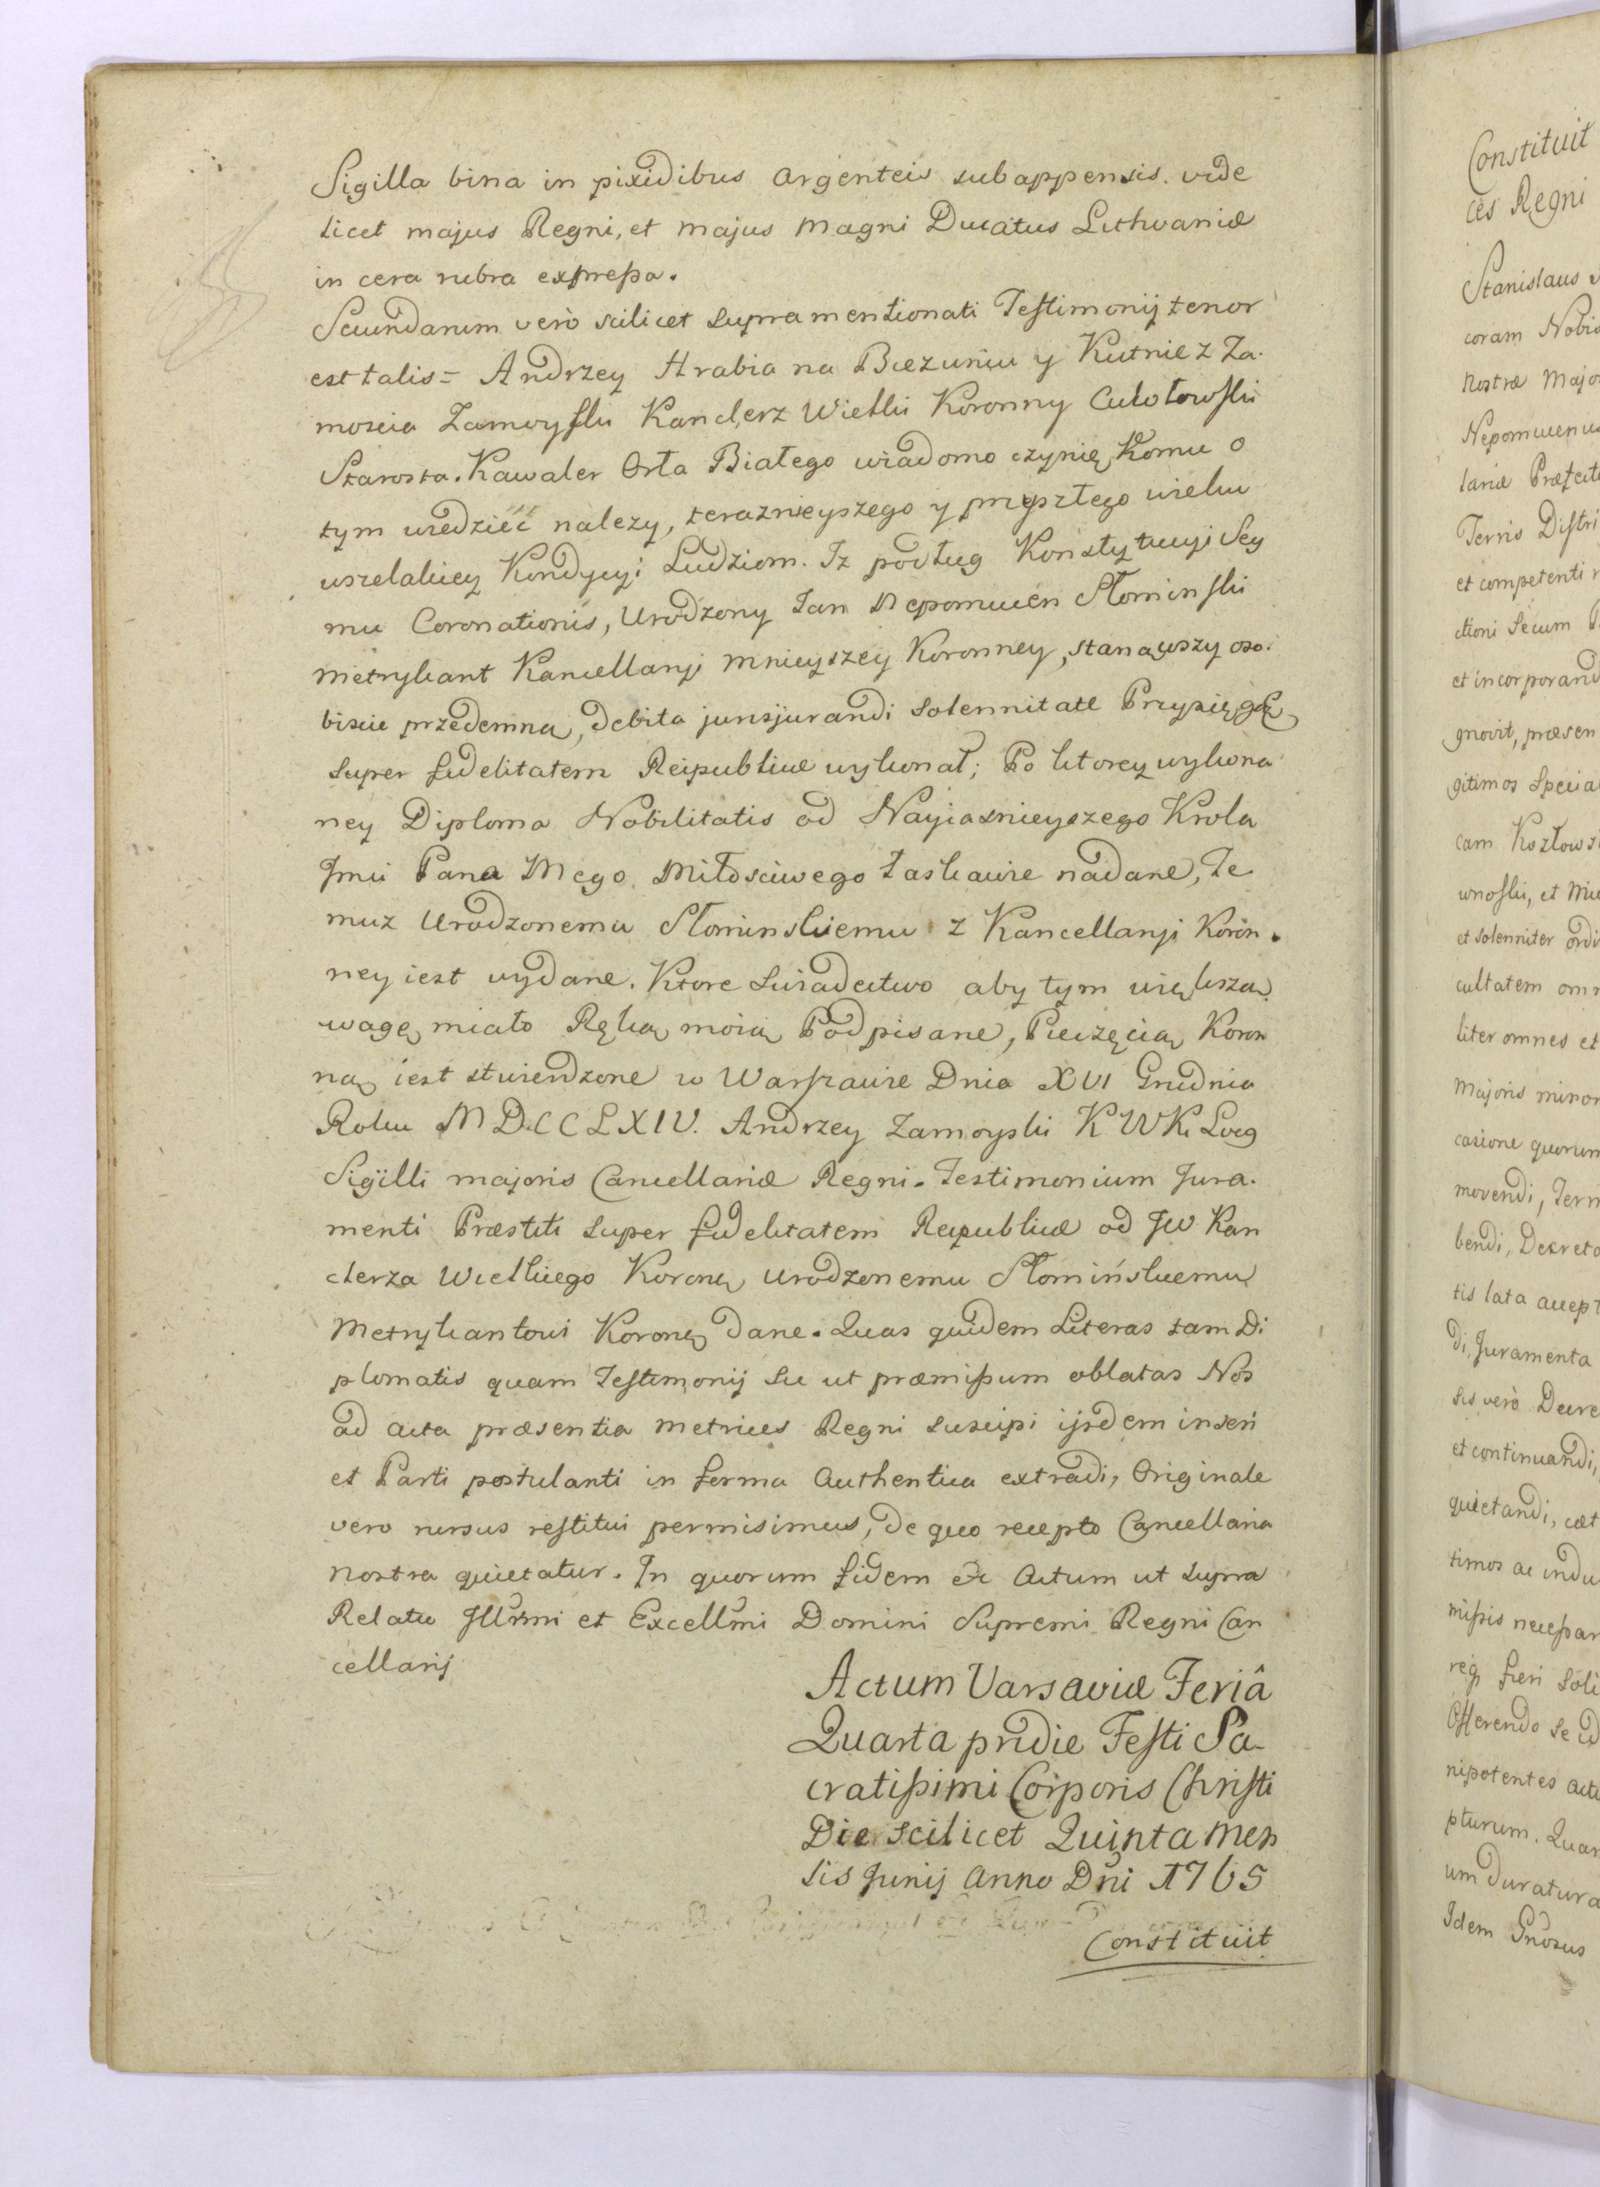 Sigilla bina in pixidibus argenteis subappensis. vide
licet majus Regni, et majus Magni Ducatus Lithvaniæ
in cera rubra expressa.
Secundarum verò scilicet supra mentionati Testimonij tenor
est talis = Andrzey Hrabia na Biezuniu y Kutnie z Za.
moscia Zamoyski Kanclerz Wielki Koronny
Starosta. Kawaler Orła Białego wiadomo czynię Komu o
tym wiedzieć nalezy, teraznieyszego y przyszłego wieku
wszelakiey Kondycyi Ludziom. Iz podług Konstytucyi Sey
mu Coronationis, Urodzony Jan Nepomucen Słominski
Metrykant Kancellaryi mnieyszey Koronney, stanąwszy oso.
biscie przedemną, debita jurisjurandi solennitate Przysięgę
super fidelitatem Reipublicæ wykonał; Po ktorey wykona
ney Diploma Nobilitatis od Nayiasnieyszego Krola
Jmci Pana Mego Miłosciwego łaskawie nadane, Te
muz Urodzonemu Słominskiemu z Kancellaryi Koron.
ney iest wydane. Ktore swiadectwo aby tym większą
wagę miało Ręką moią Podpisane, Pieczęcią Koron
ną iest stwierdzone w Warszawie Dnia XVI Grudnia
Roku MDCCLXIV. Andrzey Zamoyski K W K Locg
Sigilli majoris Cancellariæ Regni. Testimonium Jura.
menti Præstiti super fidelitatem Reipublicæ od JW Kan
clerza Wielkiego Koronẹ Urodzonemu Słomińskiemu
Metrykantowi Koronẹ dane. Quas quidem Literas tam Di
plomatis quam Testimonij sic ut præmissum oblatas Nos
ad acta præsentia Metrices Regni suscipi ijsdem inseri
et Parti postulanti in forma authentica extradi, Originale
vero rursus restitui permisimus, de quo recepto Cancellaria
nostra quietatur. In quorum fidem &c Actum ut supra
Relatio Illrmi et Excellmi Domini Supremi Regni Can
cellarij
Actum Varsaviæ Feriâ
Quarta pridie Festi Sa-
cratissimi Corporis Christi
Die scilicet Quinta Men
sis Junij Anno Dni 1765
Constituit
Constituit
ces Regni
Stanislaus
coram Nobis
Nostræ Majo
Nepomucenus
lariæ Præfect
Ternis Distri
et competenti
ctioni secum
et incorporand
gnovit, præsen
gitimos specia
cam Kozłows
wnoski, et Mic
et solenniter ordi
cultatem omn
liter omnes et
Majoris minor
casione quorum
movendi, Term
bendi, Decreto
tis lata accept
di, Juramenta
sis verò Decre
et continuandi,
quietandi, cæt
timos ac indu
missis necessar
req fieri soli
Offerendo se id
nipotentes actu
pturum. Quar
um duratura
Idem Gnosus